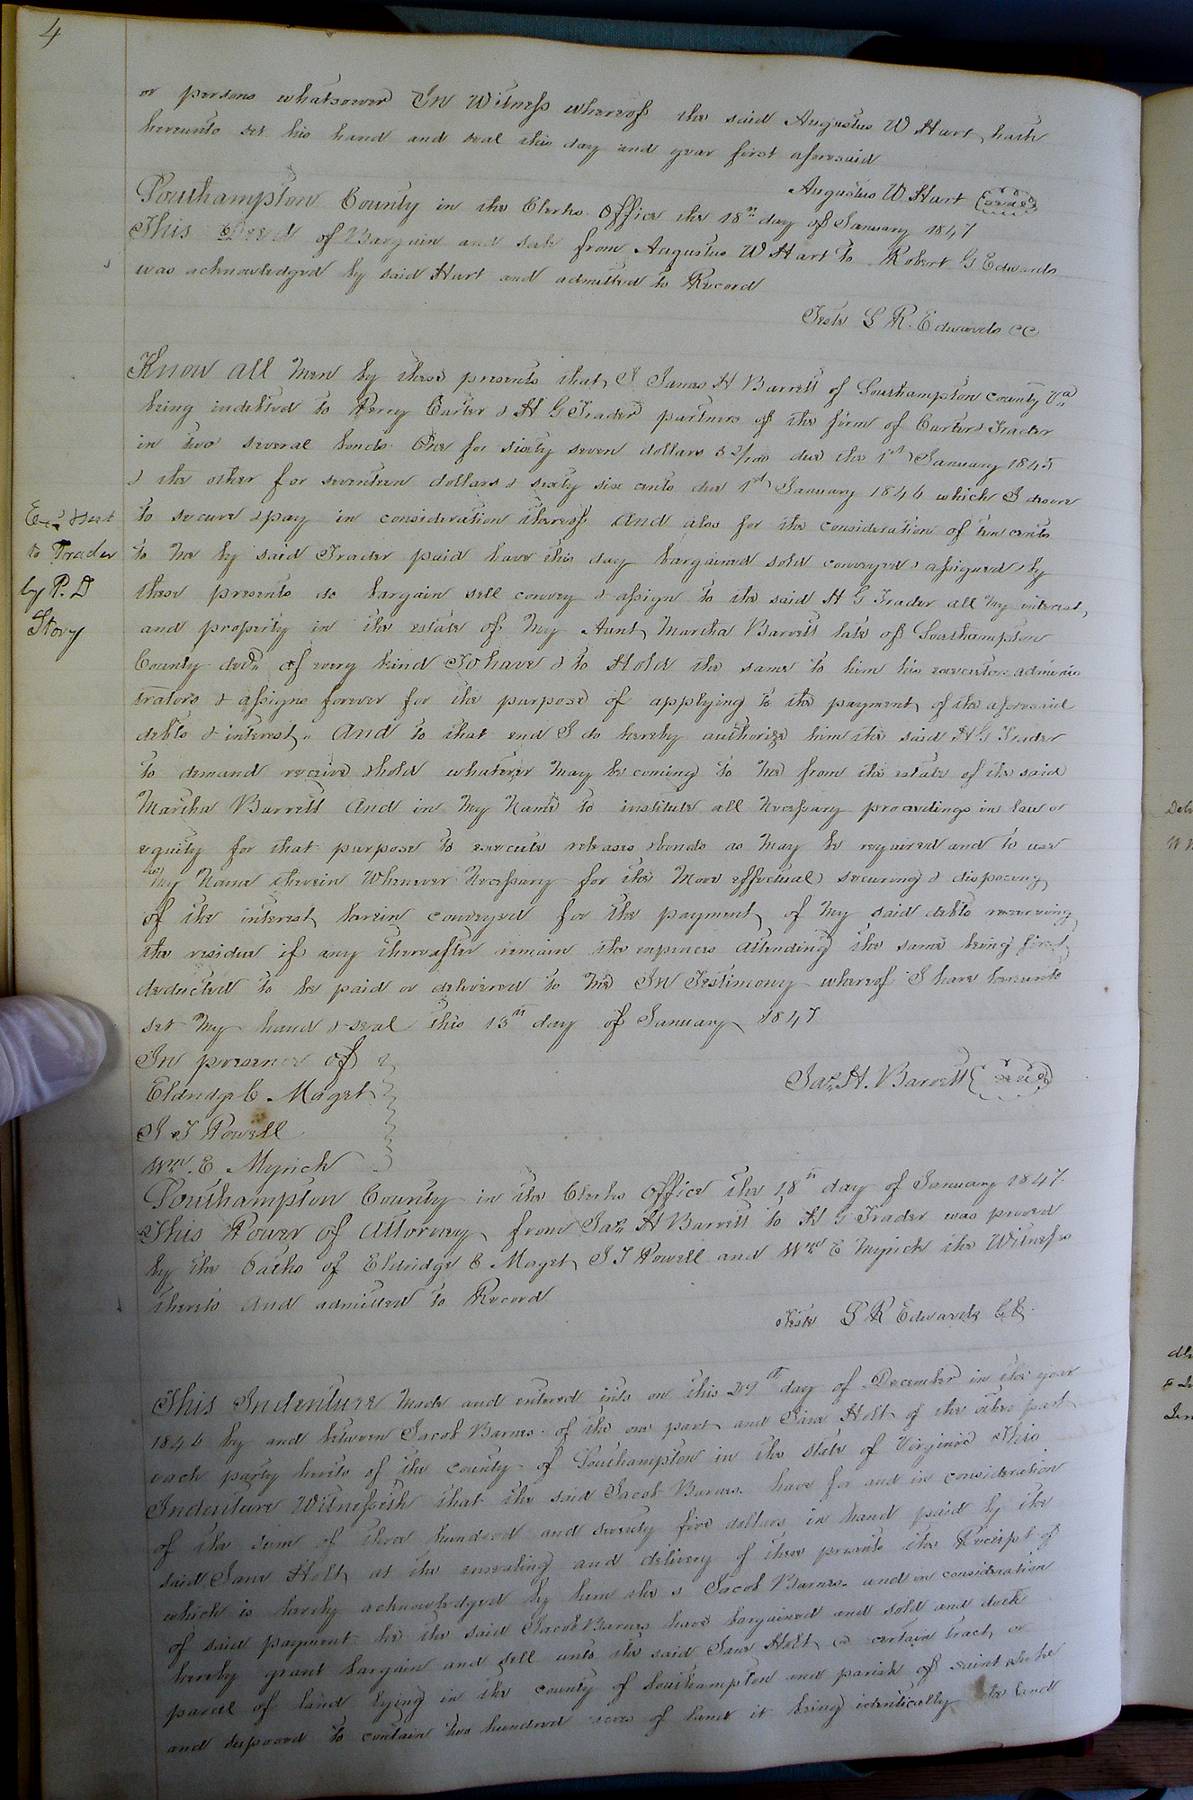 4
or persons whatsoever In Witness whereof the said Augustus W Hart hath
hereunto set his hand and seal this day and year first aforesaid
Augustus W. Hart (seal)
Southampton County in the Clerks Office the 18th day of January 1847
This Deed of Bargain and sale from Augustus W Hart to Robert G Edwards
was acknowledged by said Hart and admitted to Record
Teste L R. Edwards CC
Know all Men by these presents that I James H Barrett of Southampton County Va
being indebted to Perry Carter & H G Trader partners of the firm of Carter & Trader
in two several bonds One for sixty seven dollars 52/100 due the 1st January 1845
& the other for seventeen dollars & sixty six cents due 1st January 1846 which I desire
to secure & pay in consideration thereof And also for the consideration of ten cents
to me by said Trader paid have this day bargained sold conveyed & assigned & by
these presents do bargain sell convey & assign to the said H G Trader all my interest
and property in the estate of My Aunt Martha Barrett late of Southampton
County decd. of every kind To have & to Hold the same to him his executors adminis
trators & assigns forever for the purpose of applying to the payment of the aforesaid
debts & interest. And to that end I do hereby authorize him the said H G Trader
to demand receive & hold whatever may be coming to me from the estate of the said
Martha Barrett And in My Name to institute all necessary proceedings in law or
equity for that purpose to execute releases & bonds as may be required and to use
My Name therein Whenever Necessary for the More effectual securing & disposing
of the interest herein conveyed for the payment of my said debts reserving
the residue if any thereafter remain the expences attending the same being first
deducted to be paid or delivered to me In Testimony whereof I have hereunto
set My hand & seal this 15th day of January 1847
In presence of
Jas. H. Barrett (seal)
Eldridge C. Maget
J T Powell
Wm. E Myrick
Southampton County in the Clerks Office the 18th day of January 1847.
This Power of Attorney from Jas. H Barrett to H G Trader was proved
by the Oaths of Eldridge C Maget, J T Powell and Wm E Myrick the Witnesses
thereto And admitted to Record
Teste L R Edwards C.C.
Exd. & Sent
to Trader
by P. D
Story
This Indenture Made and entered into on this 29th day of December in the year
1846 by and between Jacob Barnes of the one part and Jane Holt of the other part
each party hereto of the county of Southampton in the state of Virginia This
Indenture Witnesseth that the said Jacob Barnes have for and in consideration
of the sum of three hundred and seventy five dollars in hand paid by the
said Jane Holt at the ensealing and delivery of these presents the Receipt of
which is hereby acknowledged by him the s Jacob Barnes and in consideration
of said payment he the said Jacob Barnes have bargained and sold and doth
hereby grant bargain and sell unto the said Jane Holt a certain tract or
parcel of land lying in the county of Southampton and parish of Saint Luke
and supposed to contain two hundred acres of land it being identically the land